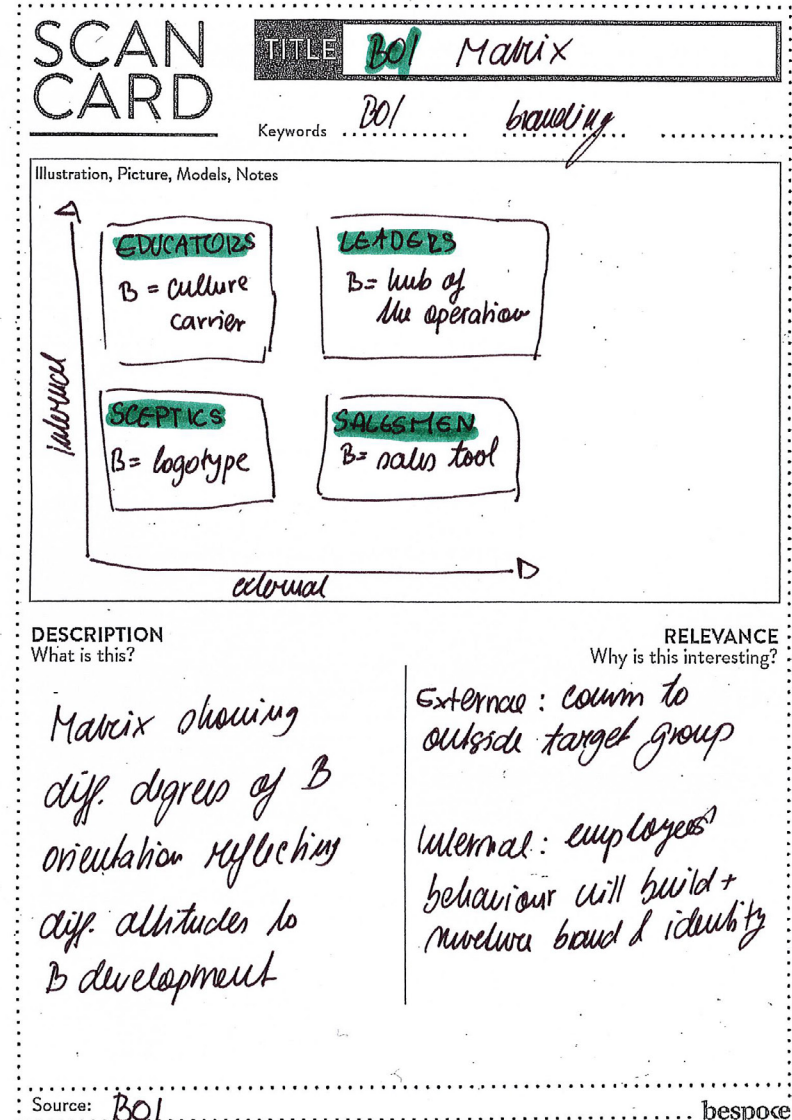 SCAN
CARD
TITLE BOI Matrix
Keywords BOI branding
Illustration, Picture, Models, Notes
EDUCATORS
B = culture
carrier
LEADERS
B = hub of
the operation
internal
SCEPTICS
B = logotype
SALESMEN
B = sales tool
external
DESCRIPTION
What is this?
Matrix showing
diff. degrees of B
orientation reflecting
diff. attitudes to
B development
RELEVANCE
Why is this interesting?
External : comm to
outside target group
Internal : employees'
behaviour will build +
nurture brand & identity
Source: BOI
bespoke